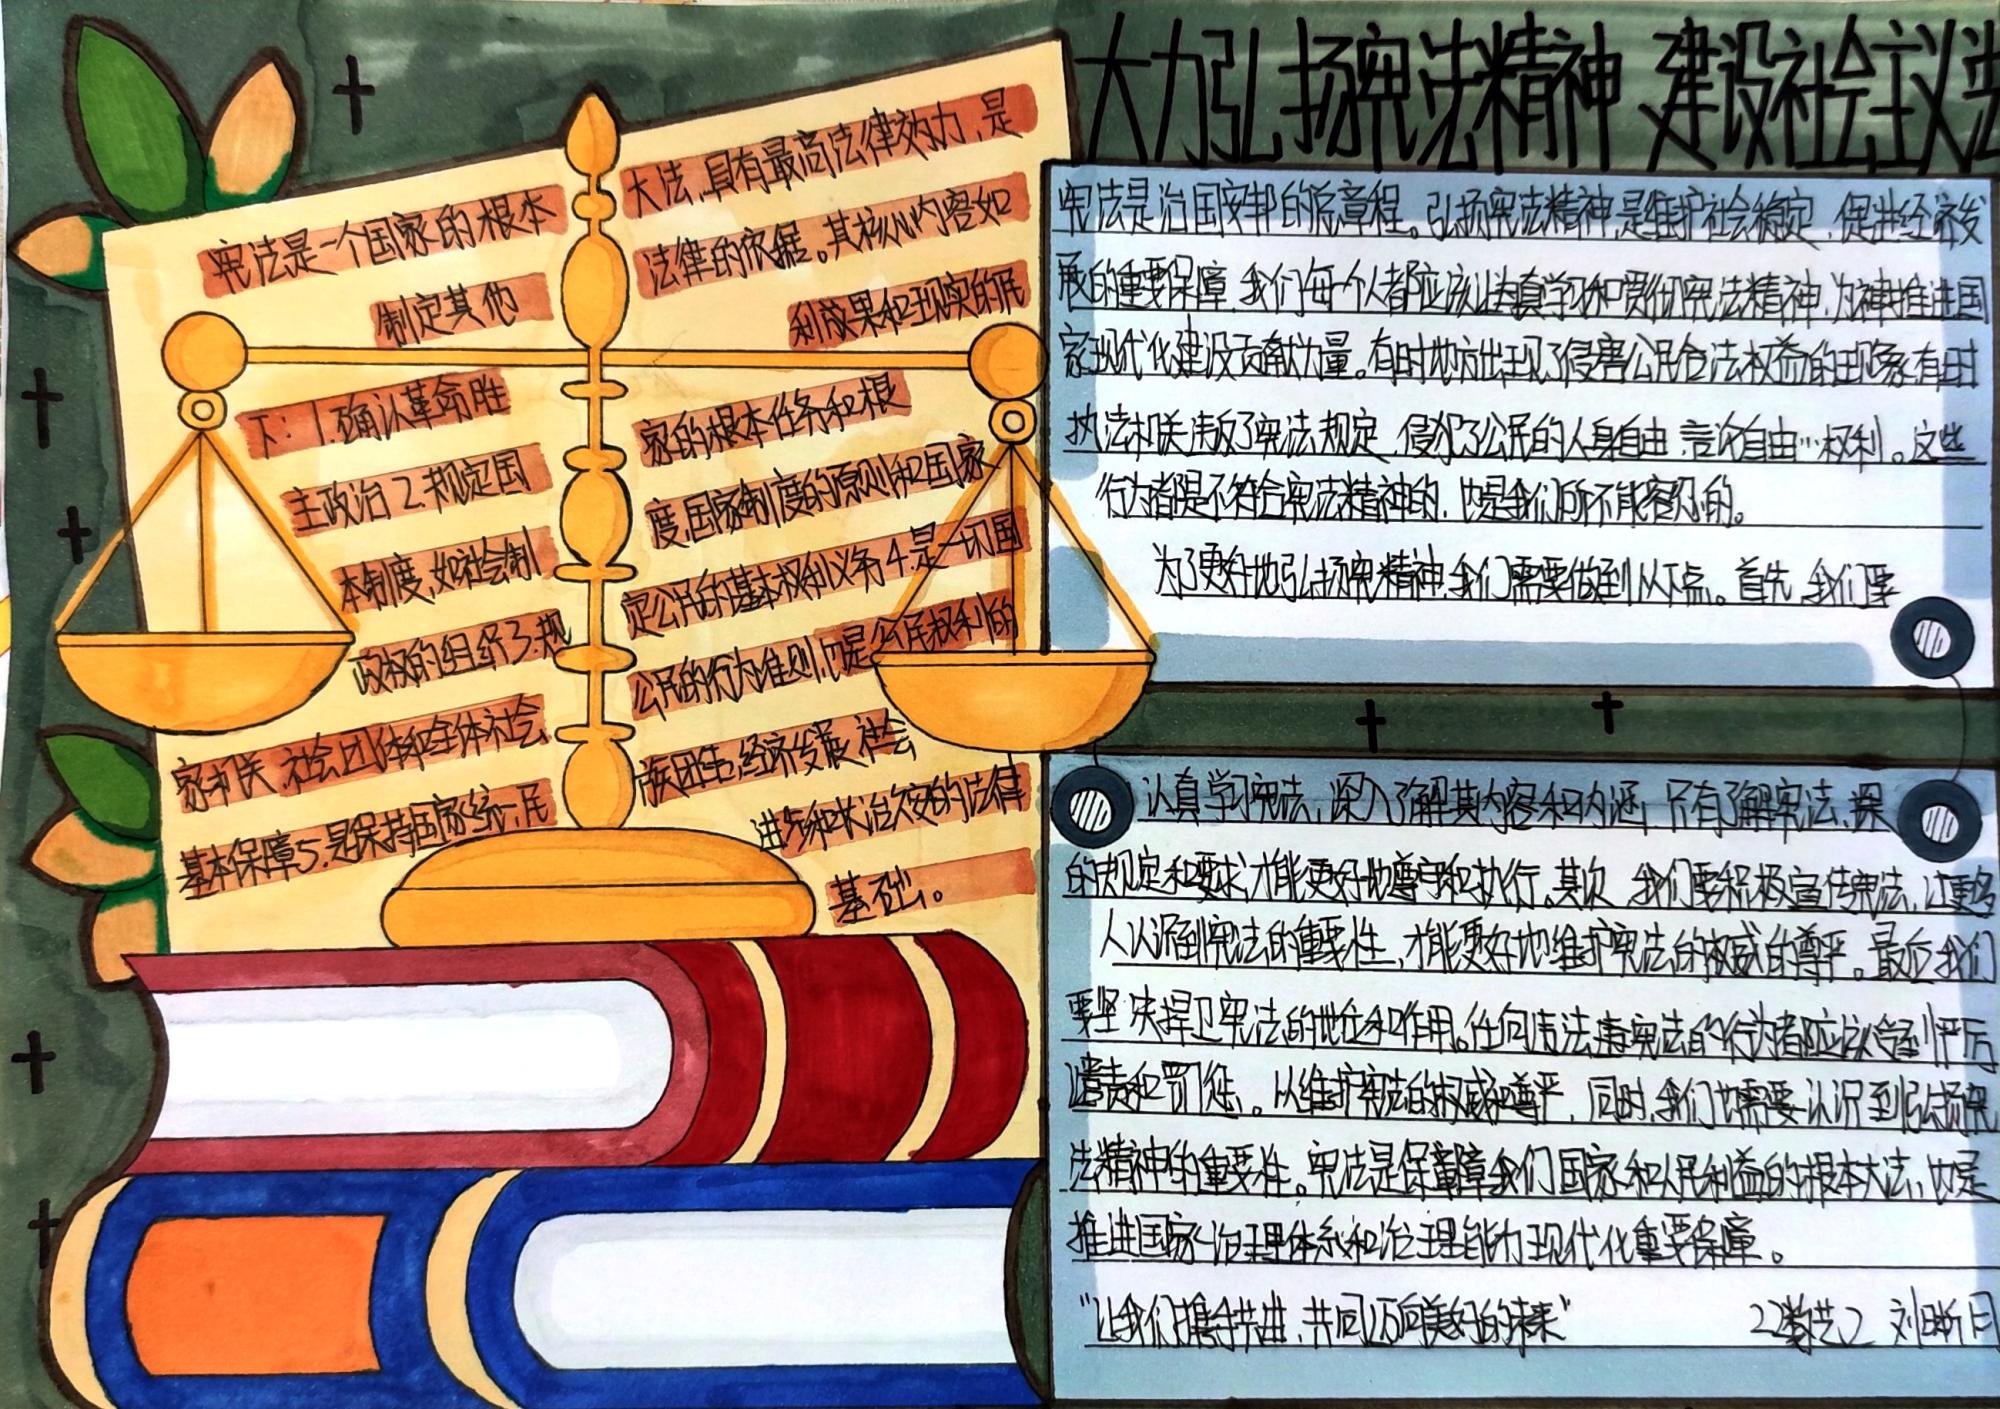 大力弘扬宪法精神 建设社会主义法
宪法是一个国家的根本
大法,具有最高法律效力,是
制定其他
法律的依据。其核心内容如
下:1.确认革命胜
利成果和现实的民
主政治2.规定国
家的根本任务和根
本制度,如社会制
度,国家制度的原则和国家
政权的组织3.规
定公民的基本权利义务4.是一切国
家机关 社会团体和全体社会
公民的行为准则,也是公民权利的
基本保障5.是保持国家统一,民
族团结,经济发展,社会
进步和长治久安的法律
基础。
宪法是治国安邦的总章程。弘扬宪法精神,是维护社会稳定,促进经济发
展的重要保障,我们每一个人都应该认真学习和贯彻宪法精神,为推进国
家现代化建设贡献力量。有时地方出现了侵害公民合法权益的现象,有时
执法机关违反了宪法规定,侵犯了公民的人身自由,言论自由…权利。这些
行为都是不符合宪法精神的,也是我们所不能容忍的。
为了更好地弘扬宪精神,我们需要做到以下点。首先,我们要
认真学习宪法,深入了解其内容和内涵,只有了解宪法,深
的规定和要求,才能更好地尊守和执行。其次,我们要积极宣传宪法,让更多
人认识到宪法的重要性,才能更好地维护宪法的权威的尊严。最后我们
要坚决捍卫宪法的地位和作用。任何违法违宪法的行为都应该受到严厉
谴责和罚惩。以维护宪法的权威和尊严,同时,我们也需要认识到弘扬宪
法精神的重要性。宪法是保障我们国家和人民利益的根本大法,也是
推进国家治理体系和治理能力现代化重要保障。
"让我们携手共进,共同迈向美好的未来" 22数艺2 刘